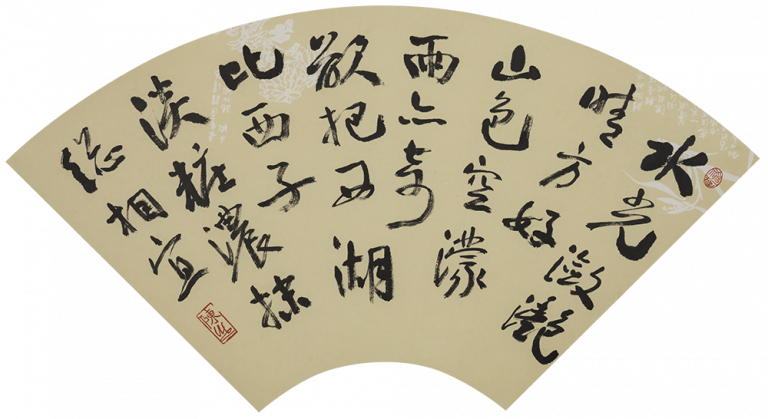 水光潋灧
晴方好
山色空濛
雨亦奇
欲把西湖
比西子
淡粧濃抹
總相宜